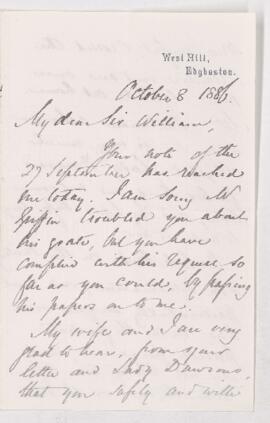 West Hill,
Edgbaston.
October 8 1886.
My dear Sir William,
Your note of the
27 September has reached
me today. I am sorry Mr
Griffin troubled you about
his goats, but you have
complied with his request so
far as you could, by passing
his papers on to me.
My wife and I are very
glad to hear, from your
letter and Lady Dawson's,
that you safely and with